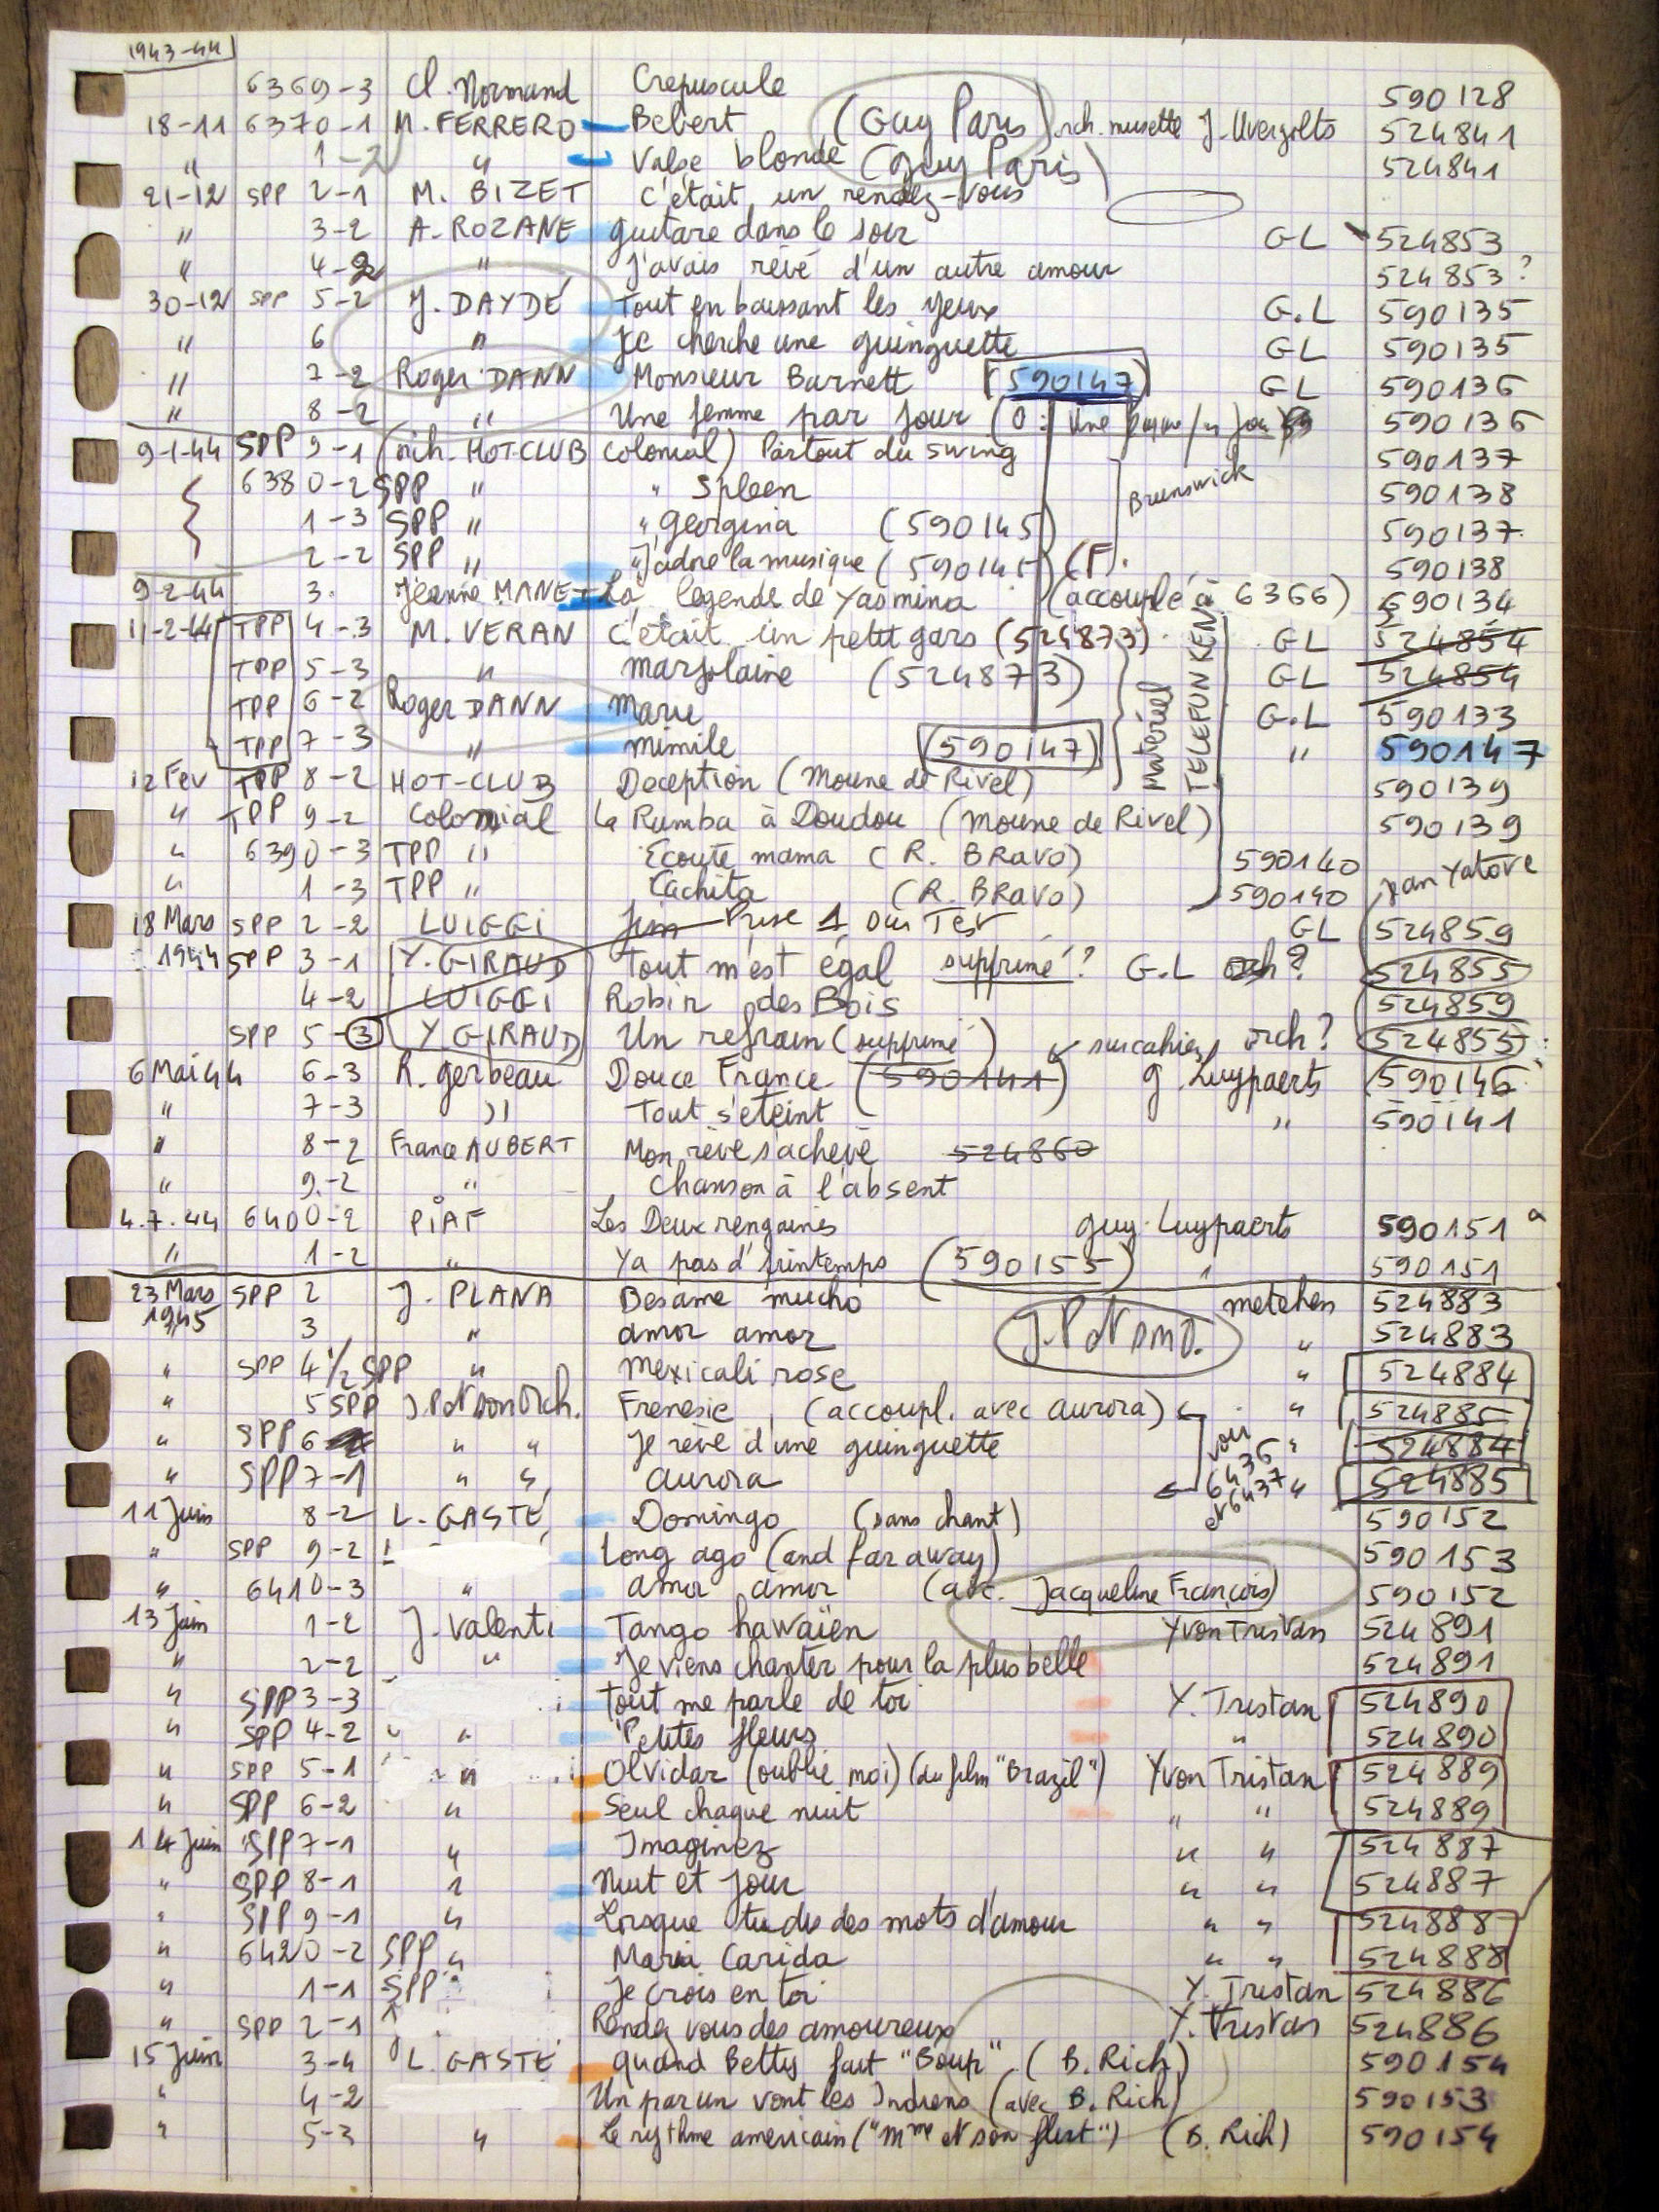 1943-44
6369-3 Cl. Normand Crepuscule 590128
18-11 6370-1 M. FERRERO Bebert (Guy Paris) orch. musette 524841
" 1-2 " Valse blonde (Guy Paris) 524841
21-12 SPP 2-1 M. BIZET C'était un rendez-vous
" 3-2 A. ROZANE guitare dans le soir GL 524853
" 4-2 " J'avais rêvé d'un autre amour 524853?
30-12 SPP 5-2 J. DAYDÉ Tout en baissant les yeux G.L 590135
" 6 " Je cherche une guinguette GL 590135
" 7-2 Roger DANN Monsieur Barnett (590147) GL 590136
" 8-2 " Une femme par jour (O: Une 590136
9-1-44 SPP 9-1 (orch. HOT-CLUB Colonial) Partout du swing 590137
6380-2 SPP " " Spleen Brunswick 590138
1-3 SPP " " Georgina (590145) 590137
2-2 SPP " "J'adore la musique (590145) (F). 590138
9-2-44 3. Jeanne MANET La legende de Yasmina (accouplé à 6366) 590134
11-2-44 TPP 4-3 M. VERAN C'était un petit gars (524873) GL 524854
TPP 5-3 " marjolaine (524873) GL 524854
TPP 6-2 Roger DANN marie G.L 590133
TPP 7-3 " mimile (590147) " 590147
Matériel TELEFUNKEN
12 Fev TPP 8-2 HOT-CLUB Deception (Moune de Rivel) 590139
" TPP 9-2 Colonial La Rumba à Doudou (Moune de Rivel) 590139
" 6390-3 TPP " Ecoute mama (R. BRAVO) 590140 Jean Yatove
" 1-3 TPP " Cachita (R. BRAVO) 590140
18 Mars SPP 2-2 LUIGGI Jim Prise 1 GL 524859
1944 SPP 3-1 Y. GIRAUD Tout m'est égal supprimé? G.L orch? 524855
4-2 LUIGGI Robin des Bois 524859
SPP 5-3 Y. GIRAUD Un refrain (supprimé) sur cahier orch? 524855
6 Mai 44 6-3 R. gerbeau Douce France (590141) g Luypaerts 590146
" 7-3 " Tout s'eteint " 590141
" 8-2 France AUBERT Mon rêve s'achève 524860
" 9-2 " Chanson à l'absent
4.7.44 6400-2 PIAF Les Deux rengaines guy Luypaerts 590151 a
" 1-2 " Ya pas d'printemps (590155) " 590151
23 Mars SPP 2 J. PLANA Besame mucho metehen 524883
1945 3 " amor amor " 524883
" SPP 4 1/2 SPP " mexicali rose " 524884
" 5 SPP Orch. Frenesie (accoupl. avec aurora) " 524885
" SPP 6 " " Je reve d'une guinguette voir 6436 " 524884
" SPP 7-1 " " aurora et 6437 " 524885
11 Juin 8-2 L. GASTÉ Domingo (sans chant) 590152
" SPP 9-2 Long ago (and far away) 590153
" 6410-3 " amor amor (avc. Jacqueline François) 590152
13 Juin 1-2 J. Valenti Tango hawaïen Yvon Tristan 524891
" 2-2 " Je viens chanter pour la plus belle 524891
" SPP 3-3 Tout me parle de toi Y. Tristan 524890
" SPP 4-2 " " Petites fleurs " 524890
" SPP 5-1 " Olvidar (oublie moi) (du film "Brazil") Yvon Tristan 524889
" SPP 6-2 " Seul chaque nuit " " 524889
14 Juin SPP 7-1 " Imaginez " " 524887
" SPP 8-1 " Nuit et jour " " 524887
" SPP 9-1 " Lorsque tu dis des mots d'amour " " 524888
" 6420-2 SPP " Maria Carida " " 524888
" 1-1 SPP Je crois en toi Y. Tristan 524886
" SPP 2-1 Rendez vous des amoureux Y. Tristan 524886
15 Juin 3-4 L. GASTÉ Quand Betty fait "Boup" (B. Rich) 590154
" 4-2 Un par un vont les Indiens (avec B. Rich) 590153
" 5-3 " Le rythme americain ("Mme et son flirt") (B. Rich) 590154